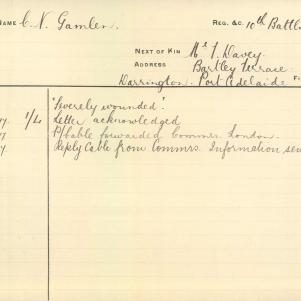 NAME C. N. Gamlen REG. &C. 10th Battl
NEXT OF KIN Mr T. Davey
ADDRESS Bartley Terrace
Warrington. Port Adelaide F
"Severely wounded".
17. 1/20 Letter acknowledged
17 forwarded Commrs. London.
Reply Cable from Commrs. Information sen